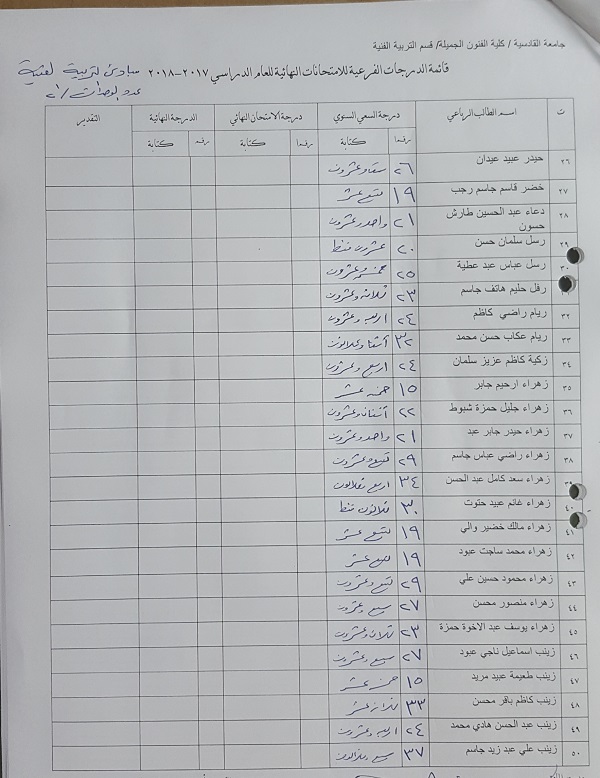 جامعة القادسية / كلية الفنون الجميلة/ قسم التربية الفنية
قائمة الدرجات الفرعية للامتحانات النهائية للعام الدراسي ٢٠١٧-٢٠١٨ مبادئ تربية فنية
عدد الوحدات /٢
ت اسم الطالب الرباعي درجة السعي السنوي درجة الامتحان النهائي الدرجة النهائية التقدير
رقما كتابة رقما كتابة رقما كتابة
٢٦ حيدر عبيد عيدان ٢٦ ستة وعشرون
٢٧ خضر قاسم جاسم رجب ١٩ تسع عشر
٢٨ دعاء عبد الحسين طارش حسون ٢١ واحد وعشرون
٢٩ رسل سلمان حسن ٢٠ عشرون فقط
٣٠ رسل عباس عبد عطية ٢٥ خمس وعشرون
رفل حليم هاتف جاسم ٢٣ ثلاثة وعشرون
٣٢ ريام راضي كاظم ٢٤ اربع وعشرون
٣٣ ريام عكاب حسن محمد ٣٢ أثنا وثلاثون
٣٤ زكية كاظم عزيز سلمان ٢٤ اربع وعشرون
٣٥ زهراء ارحيم جابر ١٥ خمسة عشر
٣٦ زهراء جليل حمزة شبوط ٢٢ أثنان وعشرون
٣٧ زهراء حيدر جابر عبد ٢١ واحد وعشرون
٣٨ زهراء راضي عباس جاسم ٢٩ تسع وعشرون
٣٩ زهراء سعد كامل عبد الحسن ٣٤ اربع وثلاثون
٤٠ زهراء غانم عبيد حتوت ٣٠ ثلاثون فقط
٤١ زهراء مالك خضير والي ١٩ تسع عشر
٤٢ زهراء محمد ساجت عبود ١٩ تسع عشر
٤٣ زهراء محمود حسين علي ٢٩ تسع وعشرون
٤٤ زهراء منصور محسن ٢٧ سبع وعشرون
٤٥ زهراء يوسف عبد الاخوة حمزة ٢٣ ثلاث وعشرون
٤٦ زينب اسماعيل ناجي عبود ٢٧ سبع وعشرون
٤٧ زينب طعيمة عبيد مريد ١٥ خمس عشر
٤٨ زينب كاظم باقر محسن ٣٣
٤٩ زينب عبد الحسن هادي محمد ٢٤ اربع وعشرون
٥٠ زينب علي عبد زيد جاسم ٣٧ سبع وثلاثون